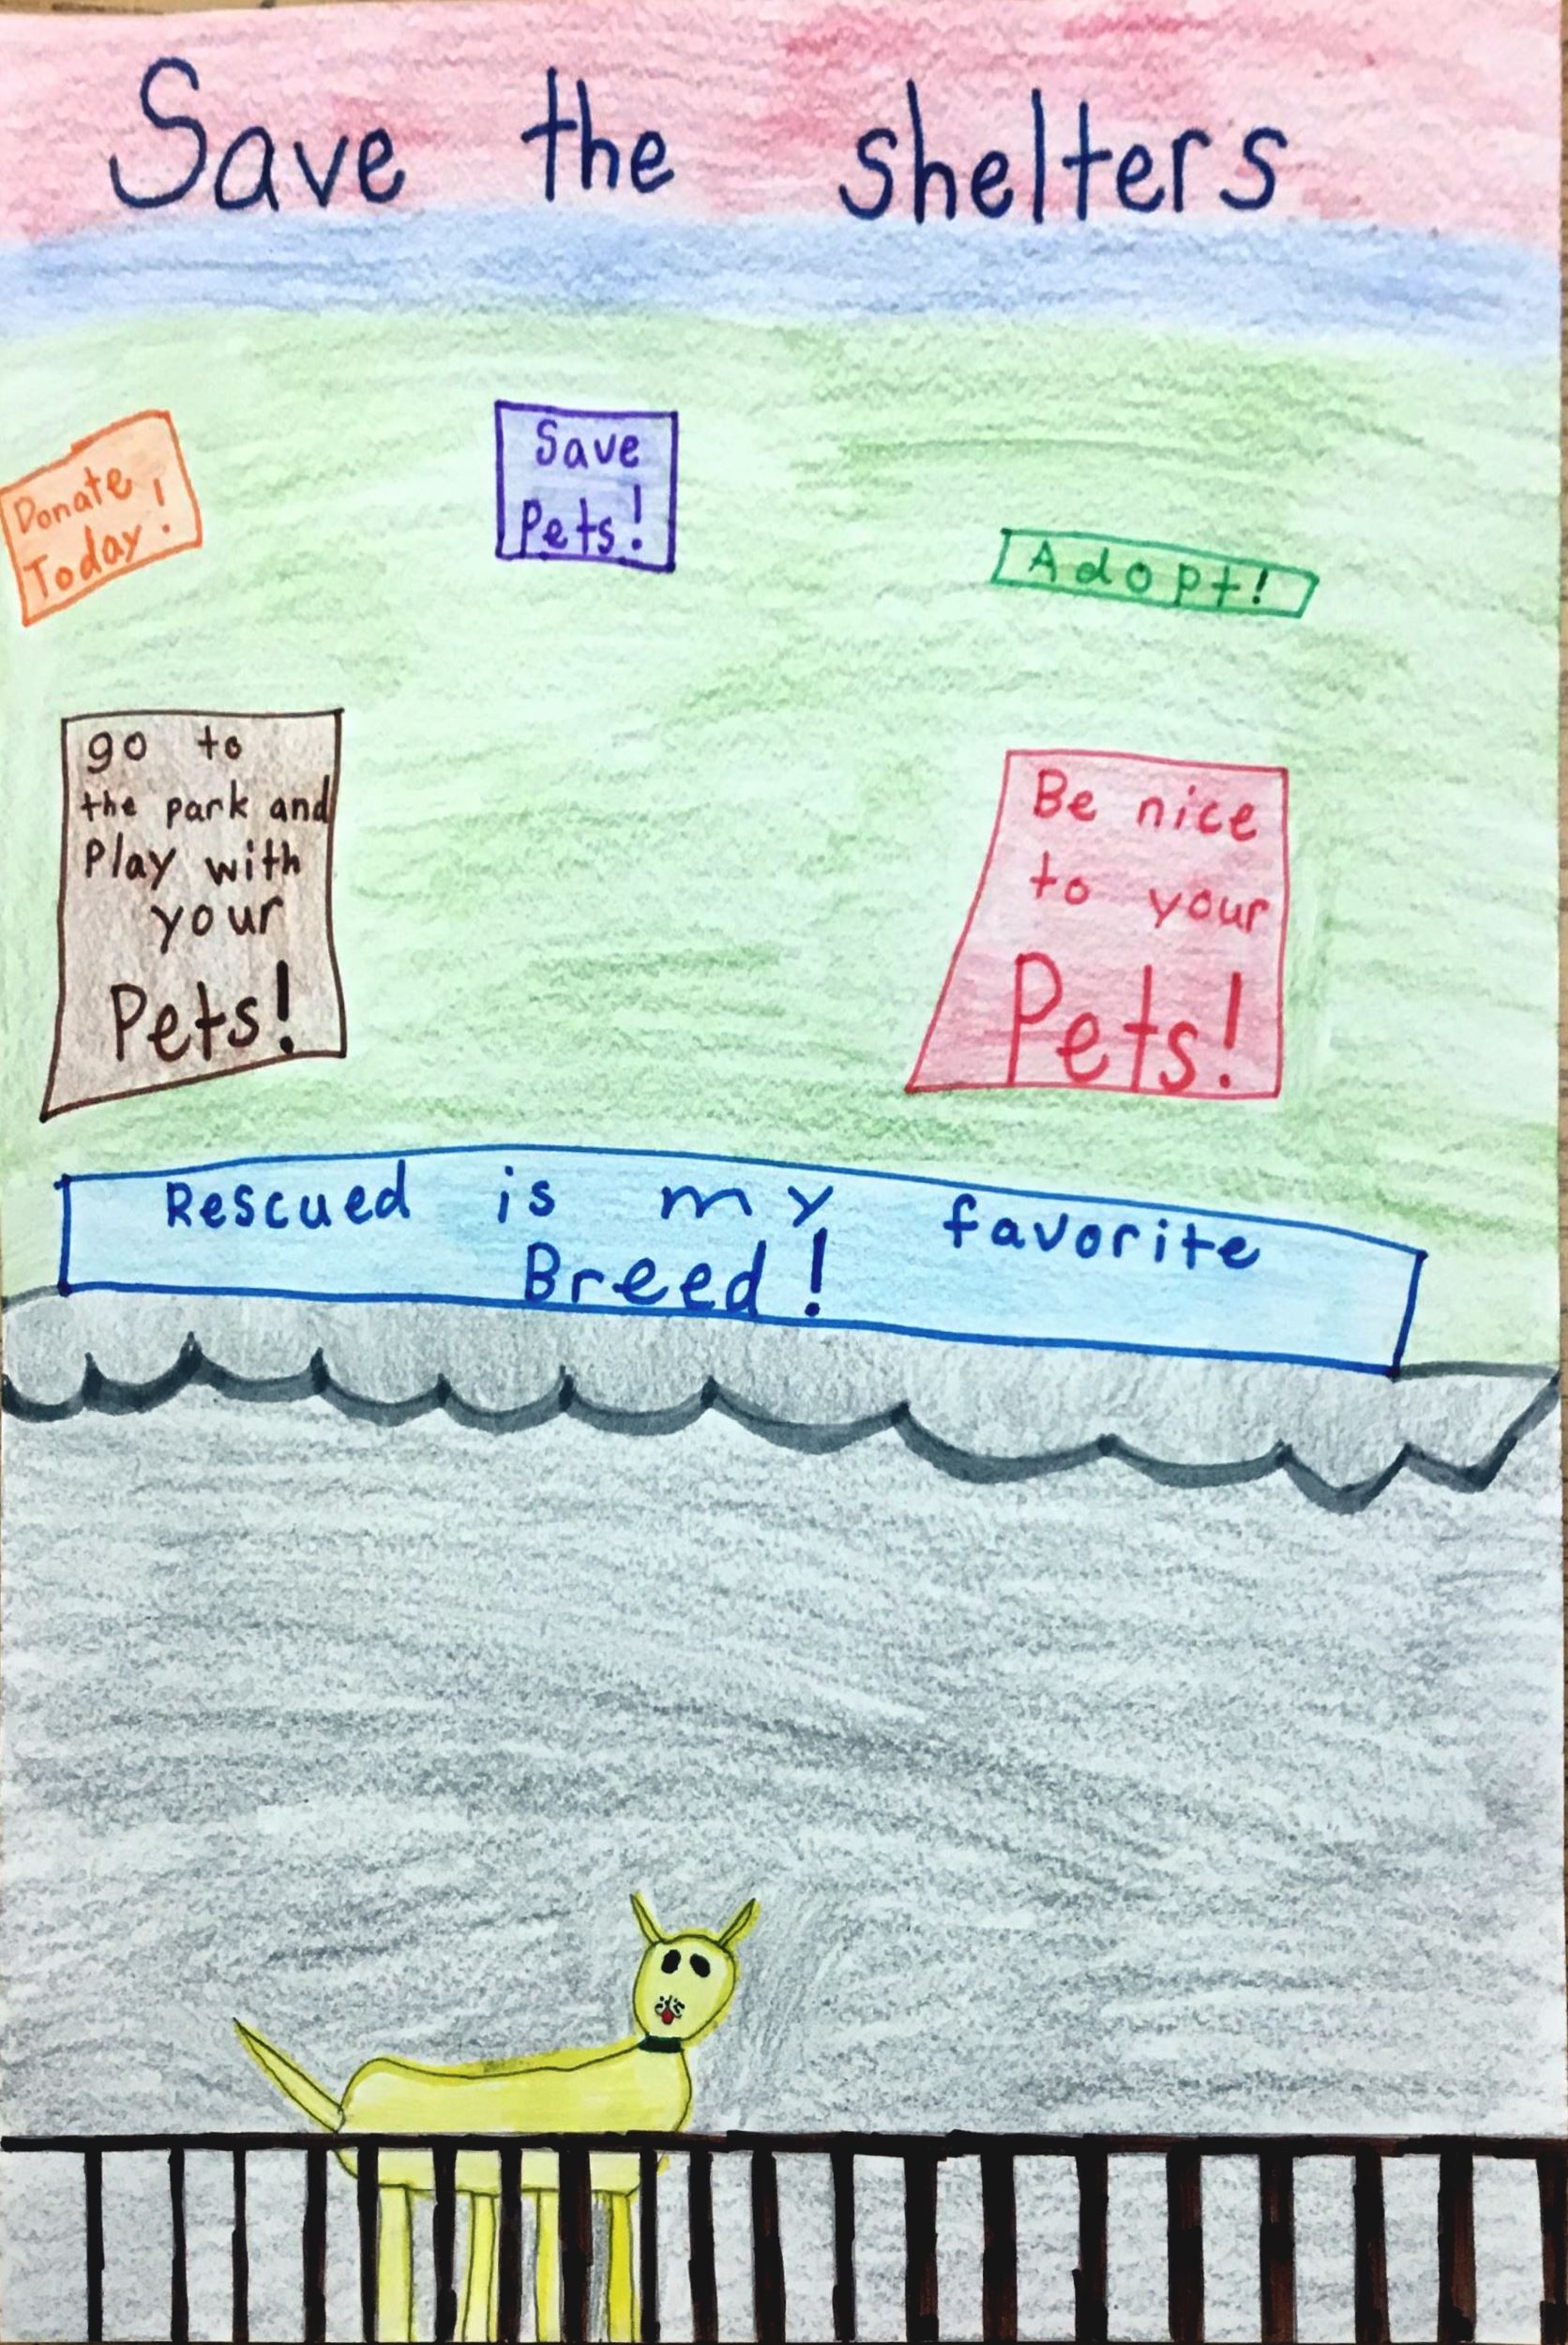 Save the shelters
Donate
Today!
Save
Pets!
Adopt!
go to
the park and
Play with
your
Pets!
Be nice
to your
Pets!
Rescued is my favorite
Breed!